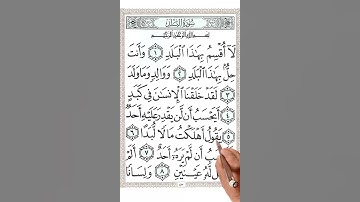 سُورَةُ الْبَلَدِ
بِسْمِ اللَّهِ الرَّحْمَٰنِ الرَّحِيمِ
لَا أُقْسِمُ بِهَٰذَا الْبَلَدِ ١ وَأَنتَ
حِلٌّ بِهَٰذَا الْبَلَدِ ٢ وَوَالِدٍ وَمَا وَلَدَ
٣ لَقَدْ خَلَقْنَا الْإِنسَانَ فِي كَبَدٍ
٤ أَيَحْسَبُ أَن لَّن يَقْدِرَ عَلَيْهِ أَحَدٌ
٥ يَقُولُ أَهْلَكْتُ مَالًا لُّبَدًا ٦
أَن لَّمْ يَرَهُ أَحَدٌ ٧ أَلَمْ
لَّهُ عَيْنَيْنِ ٨ وَلِسَانًا